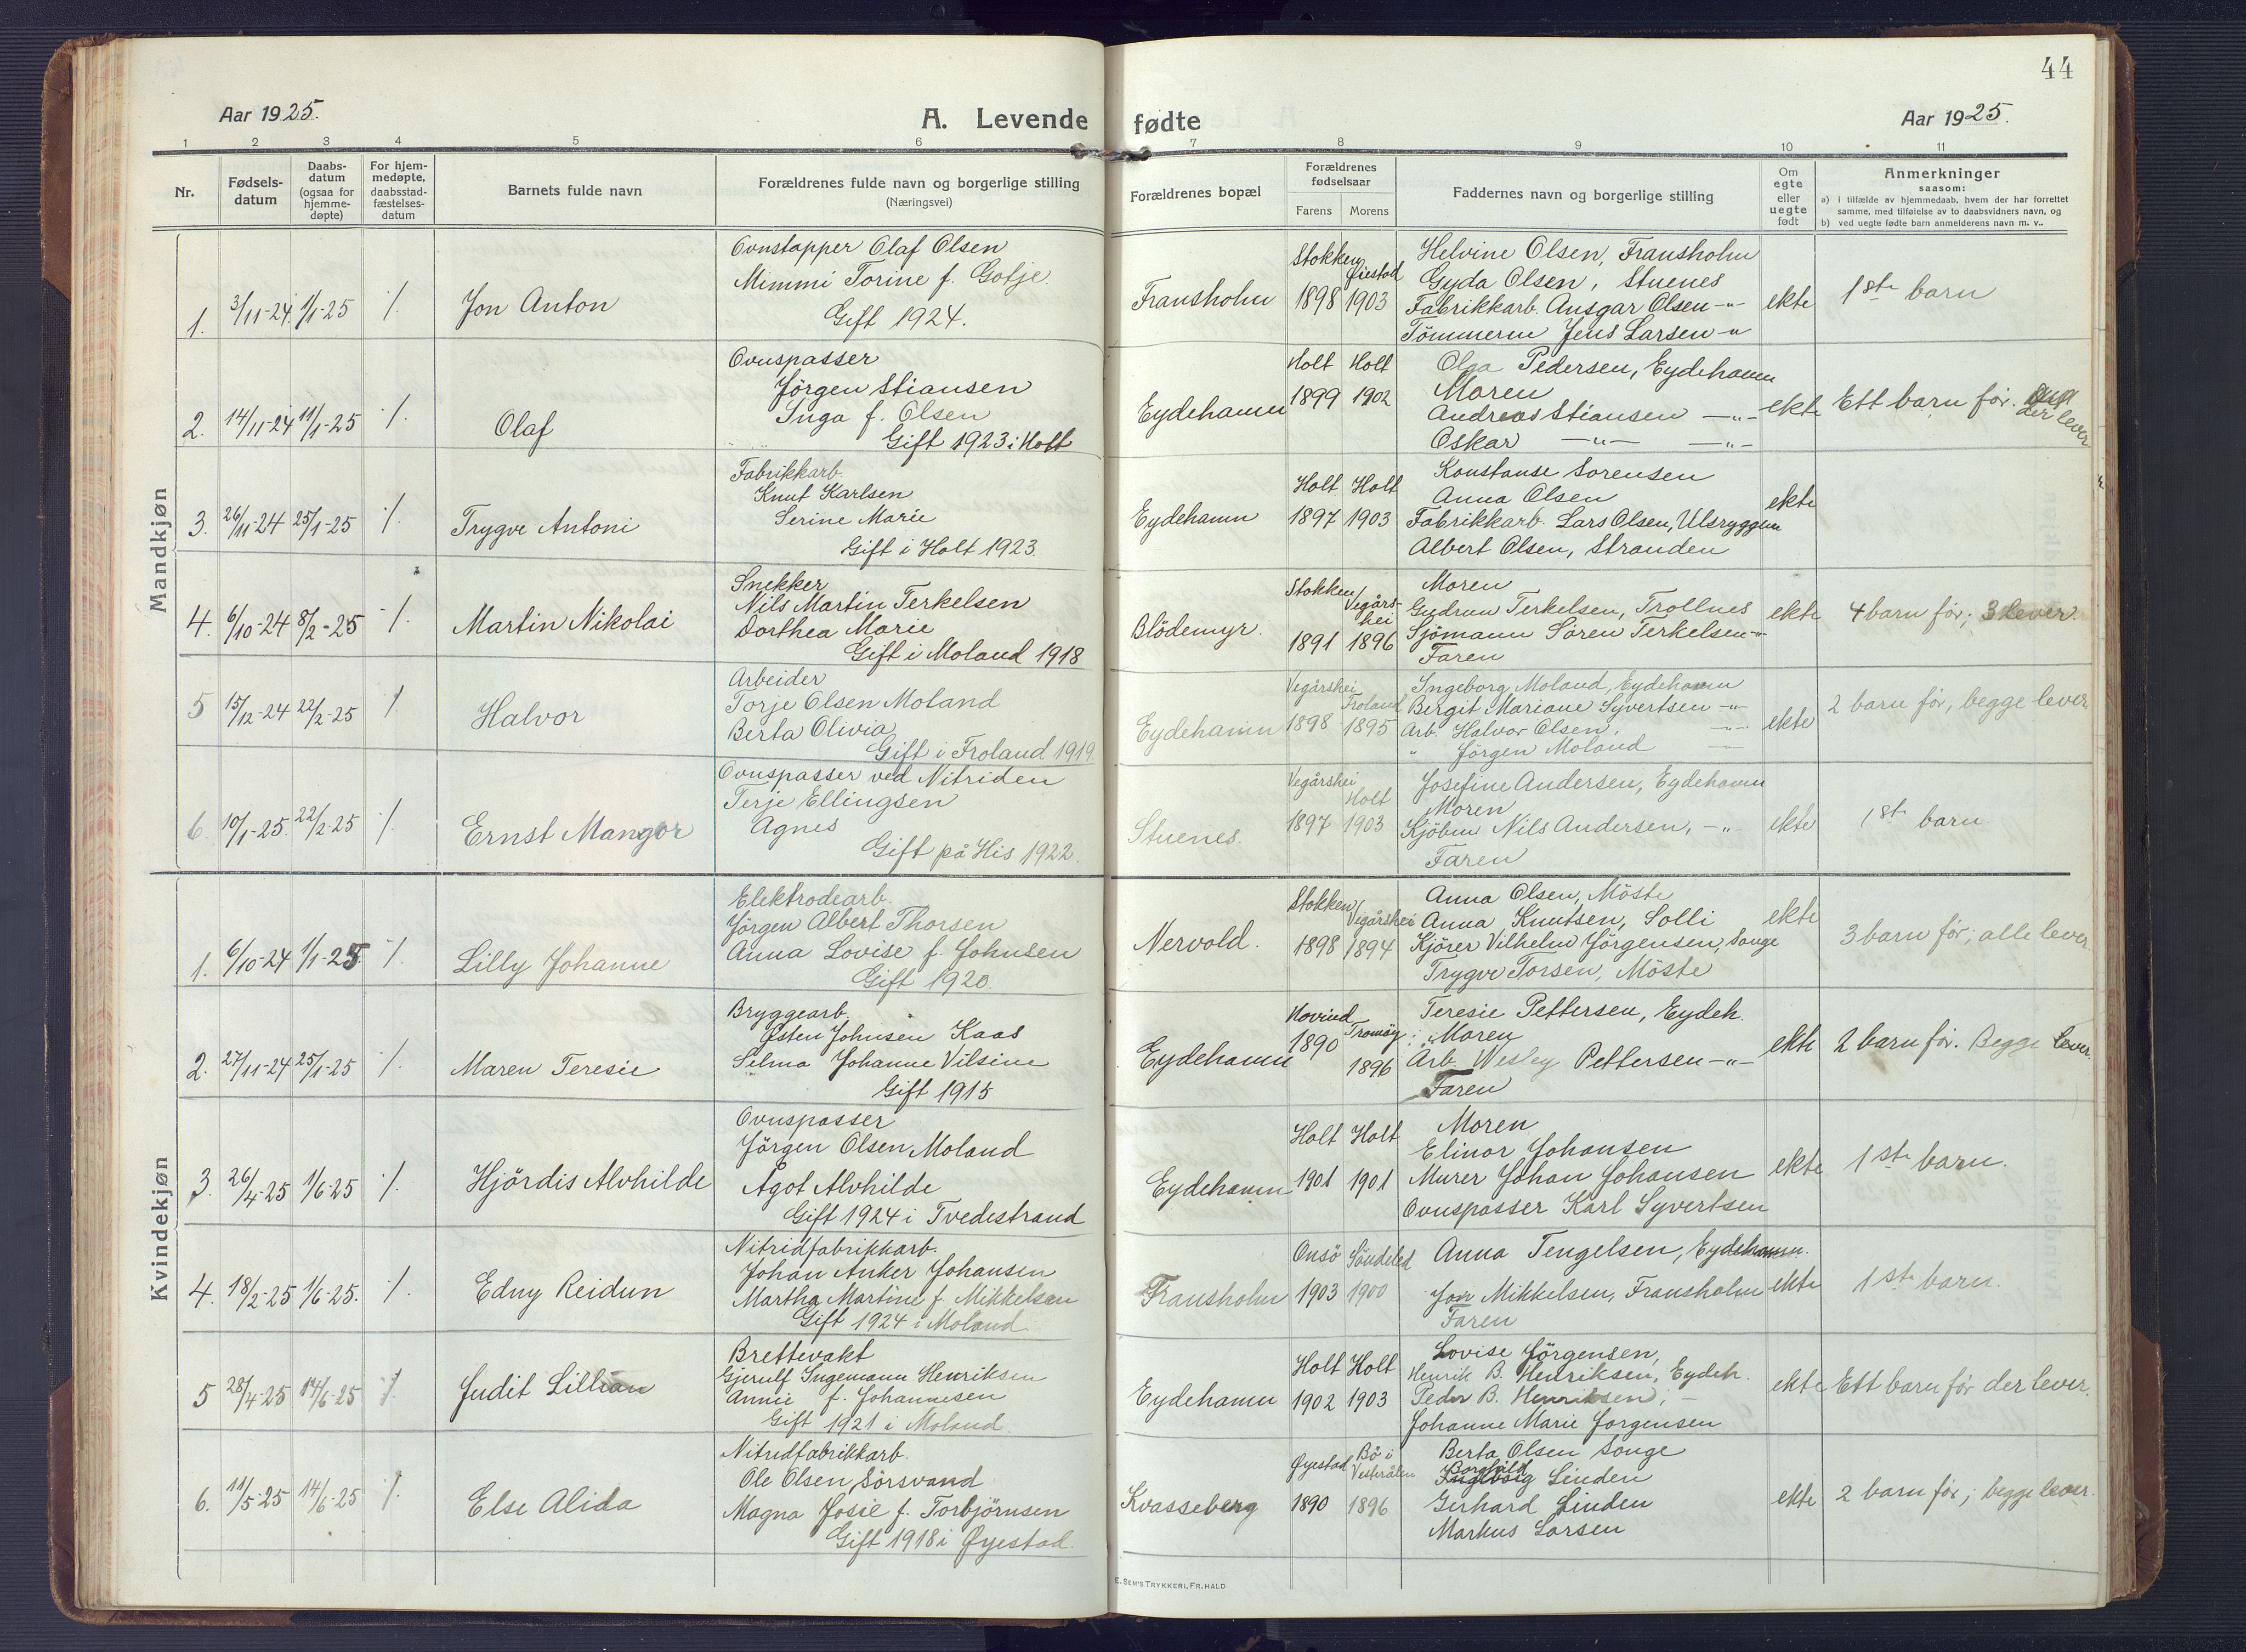 44
Aar 1925.
A. Levende fødte
Aar 1925.
1 2 3 4 5 6 7 8 9 10 11
Nr.
Fødsels-
datum
Daabs-
datum
(ogsaa for
hjemme-
døpte)
For hjem-
medøpte,
daabsstad-
fæstelses-
datum
Barnets fulde navn
Forældrenes fulde navn og borgerlige stilling
(Næringsvei)
Forældrenes bopæl
Forældrenes
fødselsaar
Farens Morens
Faddernes navn og borgerlige stilling
Om
egte
eller
uegte
født
Anmerkninger
saasom:
a) i tilfælde av hjemmedaab, hvem der har forrettet
samme, med tilføielse av to daabsvidners navn, og
b) ved uegte fødte barn anmelderens navn m. v..
Mandkjøn
1. 3/11-24. 1/1-25 ./.
Jon Anton
Ovnstapper Olaf Olsen
Mimmi Torine f. Gotje.
Gift 1924.
Fransholm
Stokken 1898
Øiestad 1903
Helvine Olsen, Fransholm
Gyda Olsen, Stuenes
Fabrikkarb. Ansgar Olsen -"-
Tömmerm Jens Larsen -"
ekte
1ste barn
2. 14/11-24 11/1-25 ./.
Olaf
Ovnspasser
Jörgen Stiansen
Inga f. Olsen
Gift 1923 i Holt
Eydehamn
Holt 1899
Holt 1902
Olga Pedersen, Eydehamn
Moren
Andreas Stiansen -"-
Oskar -"- -"-
ekte
Ett barn før.
der lever
3. 26/11-24 25/1-25 ./.
Trygve Antoni
Fabrikkarb.
Knut Karlsen
Serine Marie
Gift i Holt 1923.
Eydehamn
Holt 1897
Holt 1903
Konstanse Sorensen
Anna Olsen
Fabrikkarb. Lars Olsen, Ulsryggen
Albert Olsen, Stranden
ekte
4. 6/10-24 8/2-25 ./.
Martin Nikolai
Snekker
Nils Martin Terkelsen
Dorthea Marie
Gift i Moland 1918
Blödemyr.
Stokken 1891
Vegårs-
hei 1896
Moren
Gudrun Terkelsen, Trollnes
Sjömann Sören Terkelsen -"-
Faren
ekte
4 barn før; 3 lever.
5 15/12-24 22/2-25 ./.
Halvor
Arbeider
Torje Olsen Moland
Berta Olivia
Gift i Froland 1919.
Eydehamn
Vegårshei 1898
Froland 1895
Ingeborg Moland, Eydehamn
Bergit Mariane Syvertsen -"-
Arb. Halvor Olsen, -"-
" Jörgen Moland
ekte
2 barn før, begge lever
6. 10/1-25. 22/2-25 ./.
Ernst Mangor
Ovnspasser ved Nitriden
Terje Ellingsen
Agnes
Gift på His 1922.
Stuenes.
Vegårshei 1897
Holt 1903
Josefine Andersen, Eydehamn
Moren
Kjöbm Nils Andersen, -"-
Faren
ekte
1ste barn.
Kvindekjøn
1. 6/10-24 1/1-25. ./.
Lilly Johanne
Elektrodearb.
Jörgen Albert Thorsen
Anna Lovise f. Johnsen
Gift 1920.
Nervold.
Stokken 1898
Vegårshei 1894
Anna Olsen, Möste
Anna Knutsen, Solli
Kjörer Vilhelm Jörgensen, Songe
Trygve Torsen, Möste
ekte
3 barn før; alle lever.
2. 27/11-24 25/1-25 ./.
Maren Teresie
Bryggearb.
Østen Johnsen Kaas
Selma Johanne Vilsine
Gift 1915
Eydehamn
Hovind 1890
Tromöy 1896
Teresie Pettersen, Eydeh.
Moren
Arb. Wesley Pettersen -"-
Faren
ekte
2 barn før. Begge lever.
3. 26/4-25 1/6-25 ./.
Hjördis Alvhilde
Ovnspasser
Jörgen Olsen Moland
Agot Alvhilde
Gift 1924 i Tvedestrand
Eydehamn
Holt 1901
Holt 1901
Moren
Elinor Johansen
Murer Johan Johansen
Ovnspasser Karl Syvertsen
ekte
1ste barn.
4. 18/2-25 1/6-25. ./.
Edny Reidun
Nitridfabrikkarb.
Johan Anker Johansen
Martha Martine f Mikkelsen
Gift 1924 i Moland
Fransholm
Onsö 1903
Söndeled 1900
Anna Tengelsen, Eydehamn.
Jon Mikkelsen, Fransholm
Faren
ekte
1ste barn.
5 28/4-25 14/6-25 ./.
Judit Lillian
Brettevakt
Gjerulf Ingemann Henriksen
Annie f. Johannesen
Gift 1921 i Moland.
Eydehamn
Holt 1902
Holt 1903
Lovise Jörgensen,
Henrik B. Henriksen, Eydeh.
Peder B. Henriksen,
Johanne Marie Jorgensen
ekte
Ett barn før der lever.
6. 11/5-25 14/6-25 ./.
Else Alida
Nitridfabrikkarb.
Ole Olsen Sörsvand
Magna Josie f. Torbjörnsen
Gift 1918 i Øyestad.
Kvasseberg
Øyestad 1890
Bö i
Vesterålen 1896
Berta Olsen Songe
Borghild
Ingeborg Linden
Gerhard Linden
Markus Larsen
ekte
2 barn før; begge lever.
E. SEM'S TRYKKERI, FR. HALD